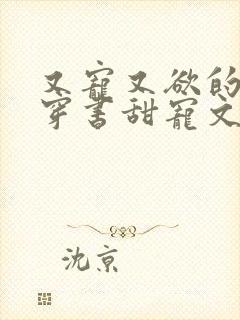 又寵又欲的
穿書甜寵文
沈京